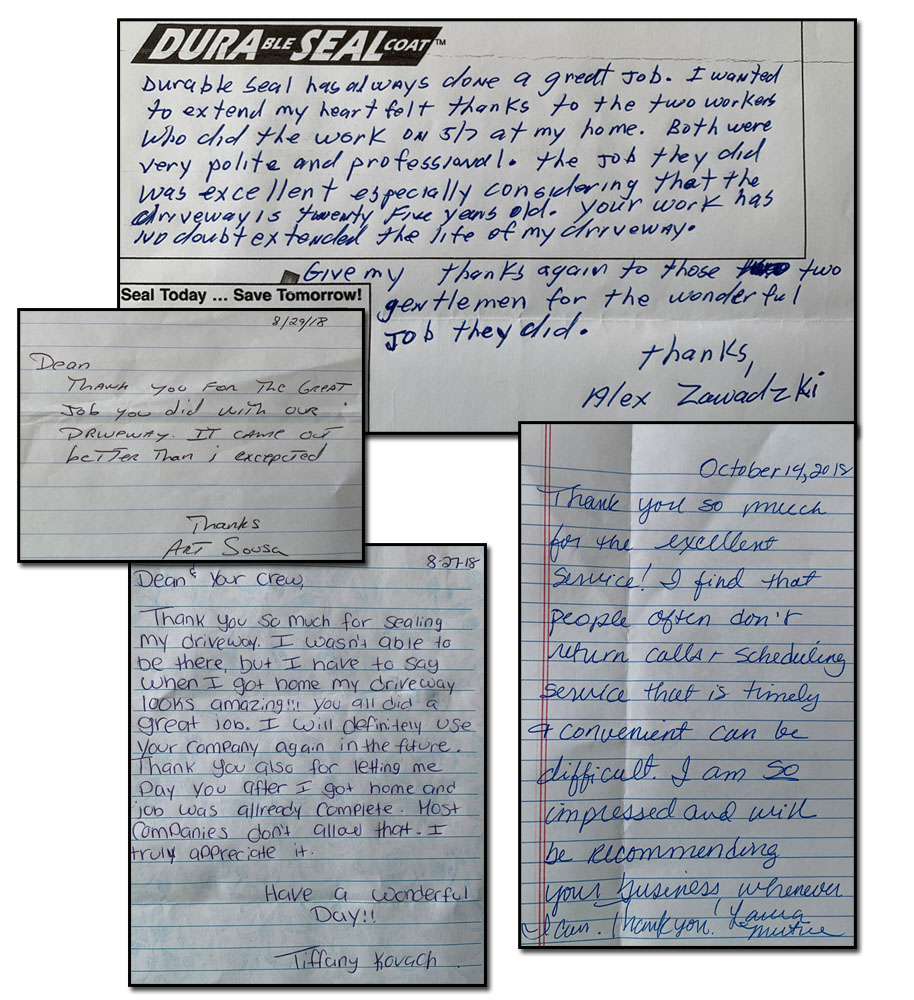 DURABLE SEALCOAT™
Durable Seal has always done a great job. I wanted
to extend my heart felt thanks to the two workers
who did the work on 5/7 at my home. Both were
very polite and professional. the job they did
was excellent especially considering that the
driveway is twenty Five years old. your work has
no doubt extended the life of my driveway.
Give my thanks again to those two
gentlemen for the wonderful
job they did.
thanks,
Alex Zawadzki
Seal Today ... Save Tomorrow!
8/29/18
Dean
Thank you for the great
job you did with our
driveway. It came out
better than i excepted
Thanks
Art Sousa
8-27-18
Dean & Your crew,
Thank you so much for sealing
my driveway. I wasn't able to
be there, but I have to say
when I got home my driveway
looks amazing!!! you all did a
great job. I will definitely use
your company again in the future.
Thank you also for letting me
pay you after I got home and
job was allready complete. Most
companies don't allow that. I
truly appreciate it.
Have a wonderful
Day!!
Tiffany Kovach
October 14, 2018
Thank you so much
for the excellent
service! I find that
people often don't
return calls + scheduling
service that is timely
& convenient can be
difficult. I am so
impressed and will
be recommending
your business whenever
I can. Thank you! Laura